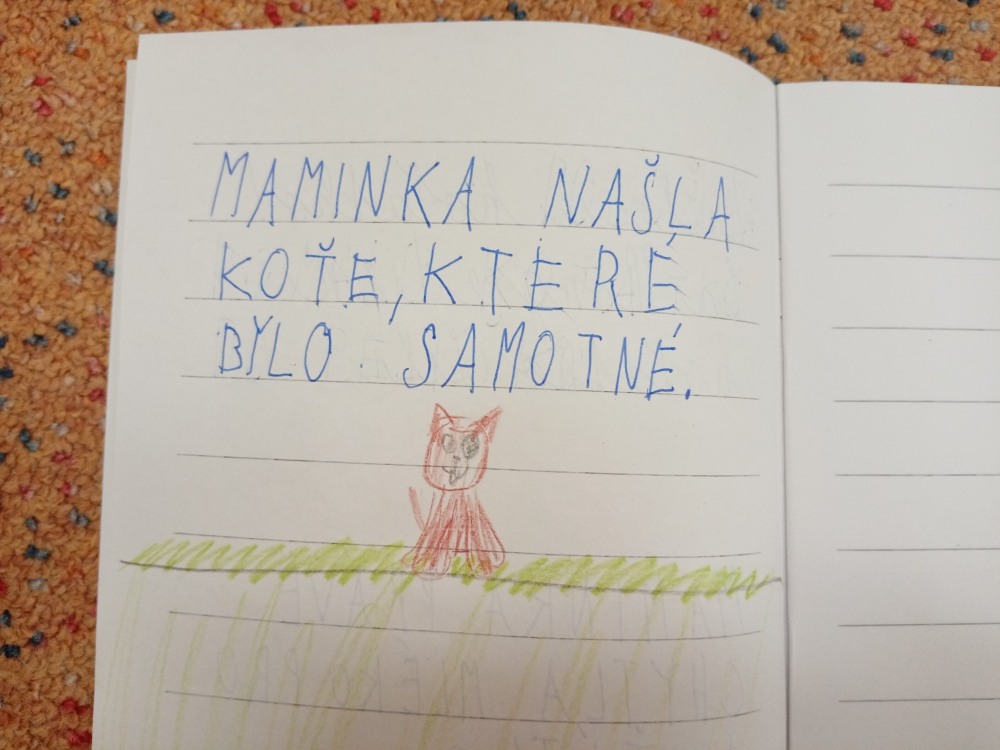 MAMINKA NAŠLA
KOŤE, KTERÉ
BYLO SAMOTNÉ.